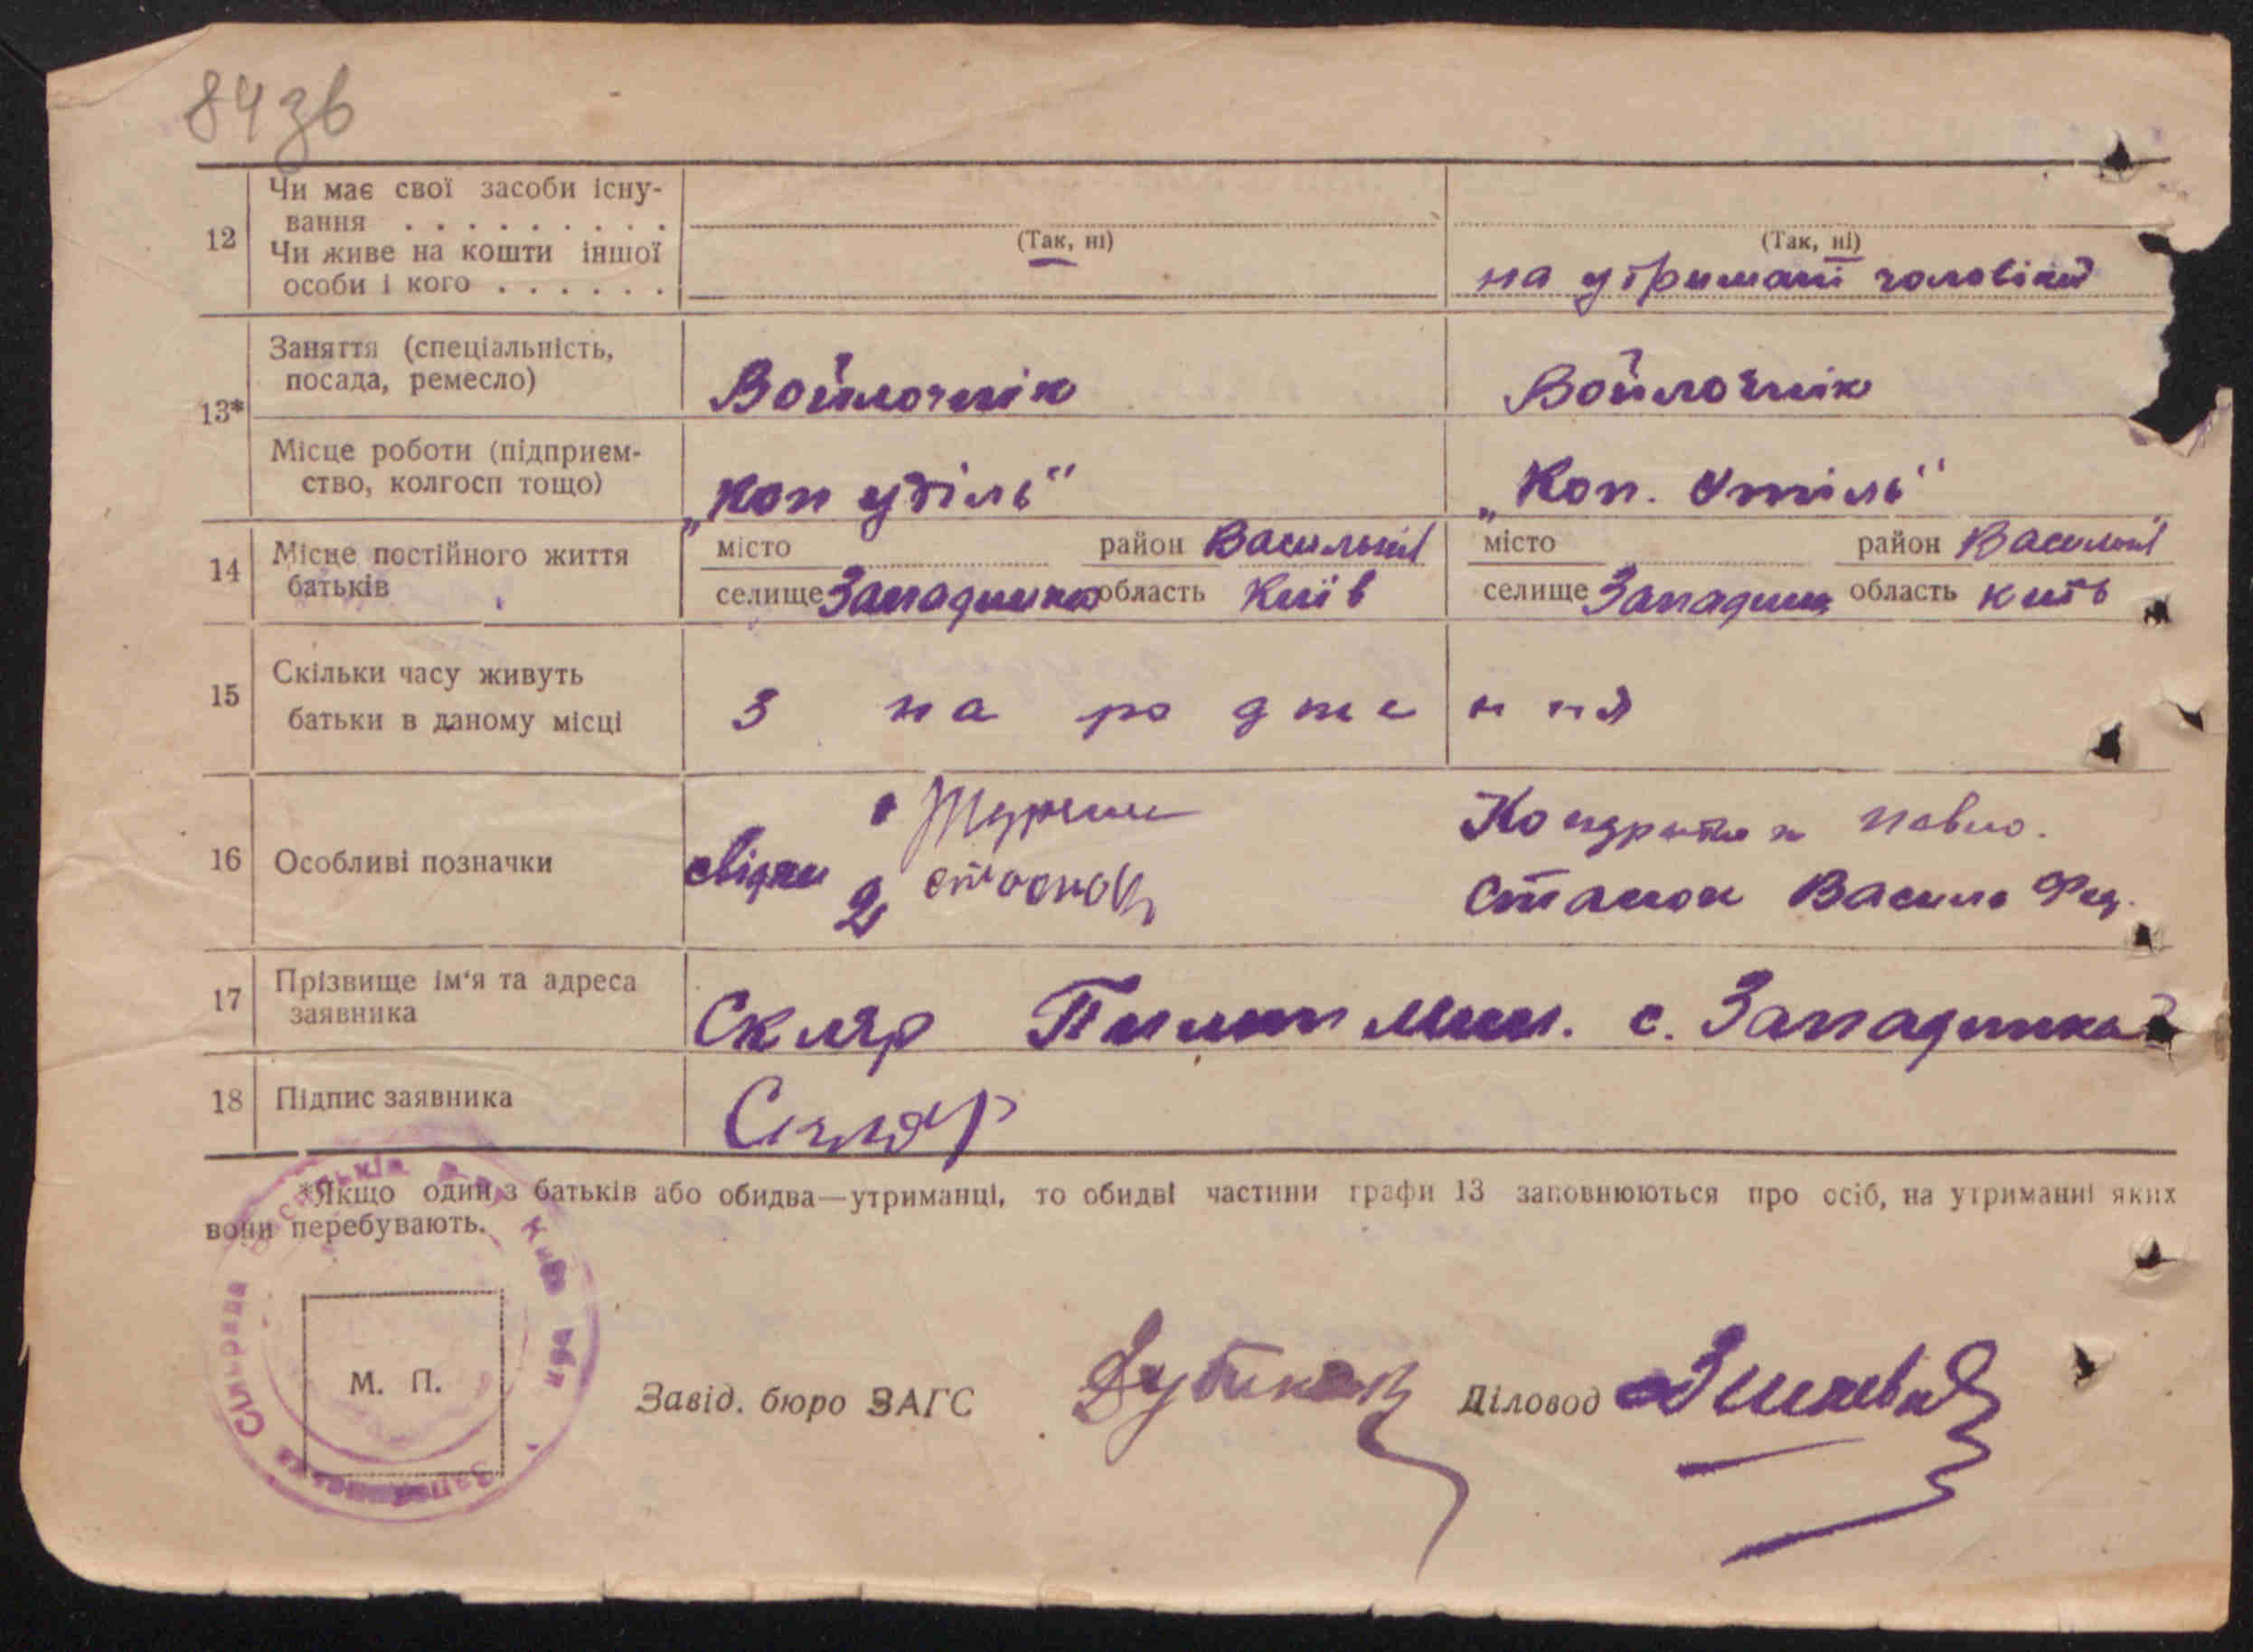 84 зв
12 Чи має свої засоби існу-
вання . . . . . . . . . .
Чи живе на кошти іншої
особи і кого . . . . . .
(Так, ні)
(Так, ні)
на утримані чоловіка
13* Заняття (спеціальність,
посада, ремесло)
Войлочнік
Войлочнік
Місце роботи (підприєм-
ство, колгосп тощо)
„Коп утіль"
„Коп. Утіль"
14 Місце постійного життя
батьків
місто район Васильків
селище Западинка область Київ
місто район Васильків
селище Западинка область Київ
15 Скільки часу живуть
батьки в даному місці
З на ро дже н ня
16 Особливі позначки
свідки
2
Кондратюк Павло.
Станок Василь Фед.
17 Прізвище ім'я та адреса
заявника
Скляр Пилип Мик. с. Западинка
18 Підпис заявника
Скляр
*Якщо один з батьків або обидва—утриманці, то обидві частини графи 13 заповнюються про осіб, на утриманні яких
вони перебувають.
Сільрада Васильків Київ обл
М. П.
Завід. бюро ЗАГС
Діловод